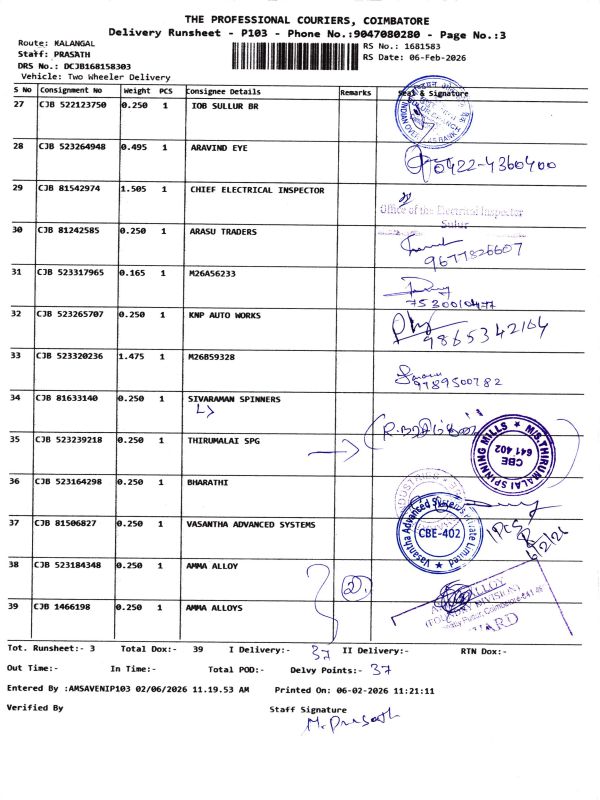 THE PROFESSIONAL COURIERS, COIMBATORE
Delivery Runsheet - P103 - Phone No.:9047080280 - Page No.:3
Route: KALANGAL
Staff: PRASATH
DRS No.: DCJB168158303
Vehicle: Two Wheeler Delivery
RS No.: 1681583
RS Date: 06-Feb-2026
S No Consignment No Weight PCS Consignee Details Remarks Seal & Signature
27 CJB 522123750 0.250 1 IOB SULLUR BR
28 CJB 523264948 0.495 1 ARAVIND EYE 0422-4360400
29 CJB 81542974 1.505 1 CHIEF ELECTRICAL INSPECTOR
Office of the Electrical Inspector
Sulur
30 CJB 81242585 0.250 1 ARASU TRADERS
9677826607
31 CJB 523317965 0.165 1 M26A56233
32 CJB 523265707 0.250 1 KNP AUTO WORKS
9865342164
33 CJB 523320236 1.475 1 M26B59328
9789500782
34 CJB 81633140 0.250 1 SIVARAMAN SPINNERS
35 CJB 523239218 0.250 1 THIRUMALAI SPG
M/S.THIRUMALAI SPINNING MILLS
CBE
641 402
36 CJB 523164298 0.250 1 BHARATHI
37 CJB 81506827 0.250 1 VASANTHA ADVANCED SYSTEMS
Vasantha Advanced Systems Private Limited
CBE-402
1PCS
6/2/26
38 CJB 523184348 0.250 1 AMMA ALLOY
2
39 CJB 1466198 0.250 1 AMMA ALLOYS
(FOUNDRY DIVISION)
Tot. Runsheet:- 3 Total Dox:- 39 I Delivery:- 37 II Delivery:- RTN Dox:-
Out Time:- In Time:- Total POD:- Delvy Points:- 37
Entered By :AMSAVENIP103 02/06/2026 11.19.53 AM Printed On: 06-02-2026 11:21:11
Verified By Staff Signature
M. Prasath